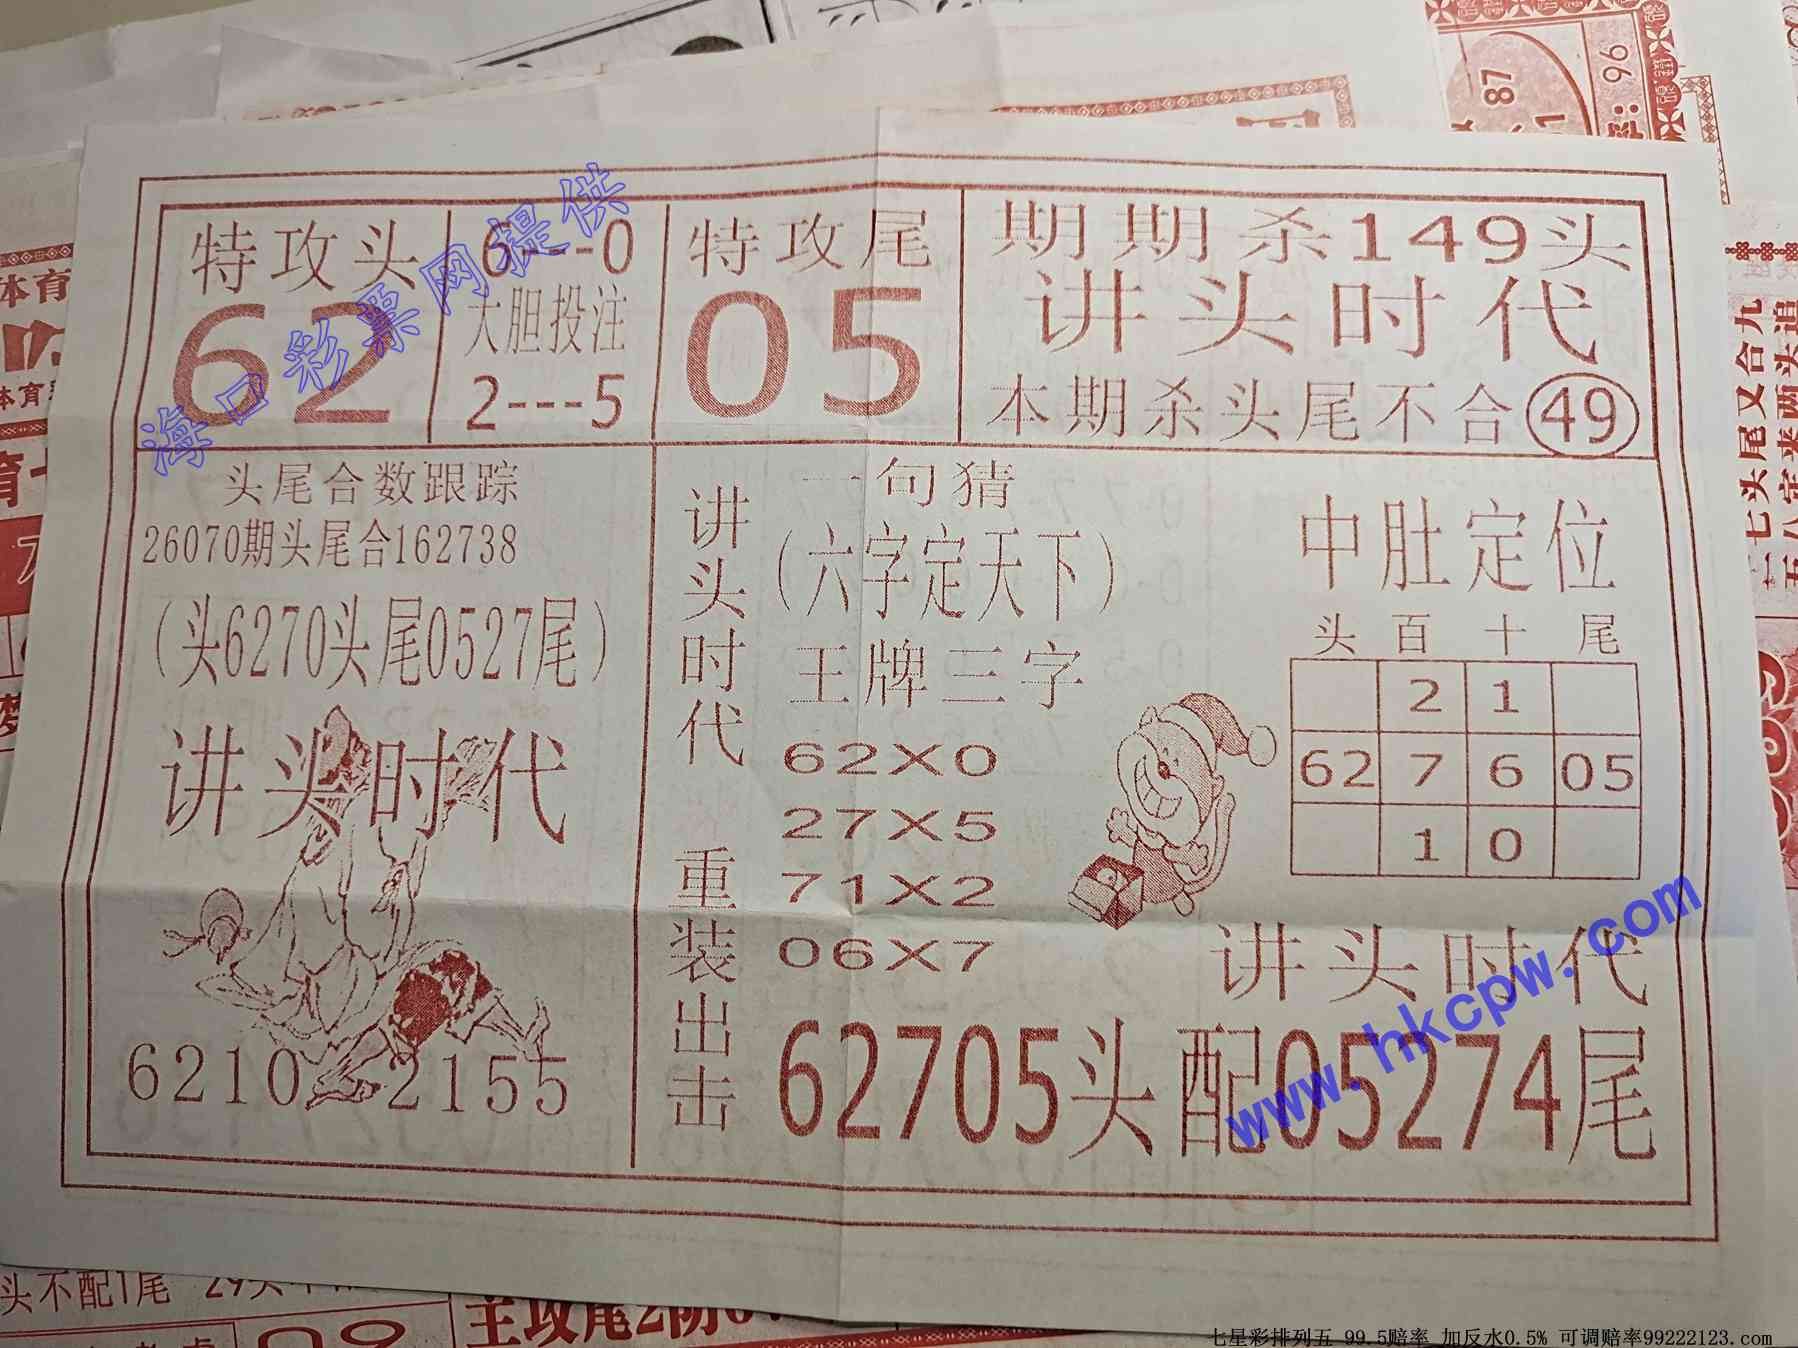 特攻头
62
6---0
大胆投注
2---5
特攻尾
05
期期杀149头
讲头时代
本期杀头尾不合49
头尾合数跟踪
26070期头尾合162738
(头6270头尾0527尾)
讲头时代
6210 2155
讲头时代 重装出击
一句猜
(六字定天下)
王牌三字
62X0
27X5
71X2
06X7
中肚定位
头 百 十 尾
2 1
62 7 6 05
1 0
讲头时代
62705头配05274尾
海口彩票网提供
www.hkcpw.com
87
96
体育
七头尾又合九
头不配1尾
主攻尾2防
七星彩排列五 99.5赔率 加反水0.5% 可调赔率99222123.com